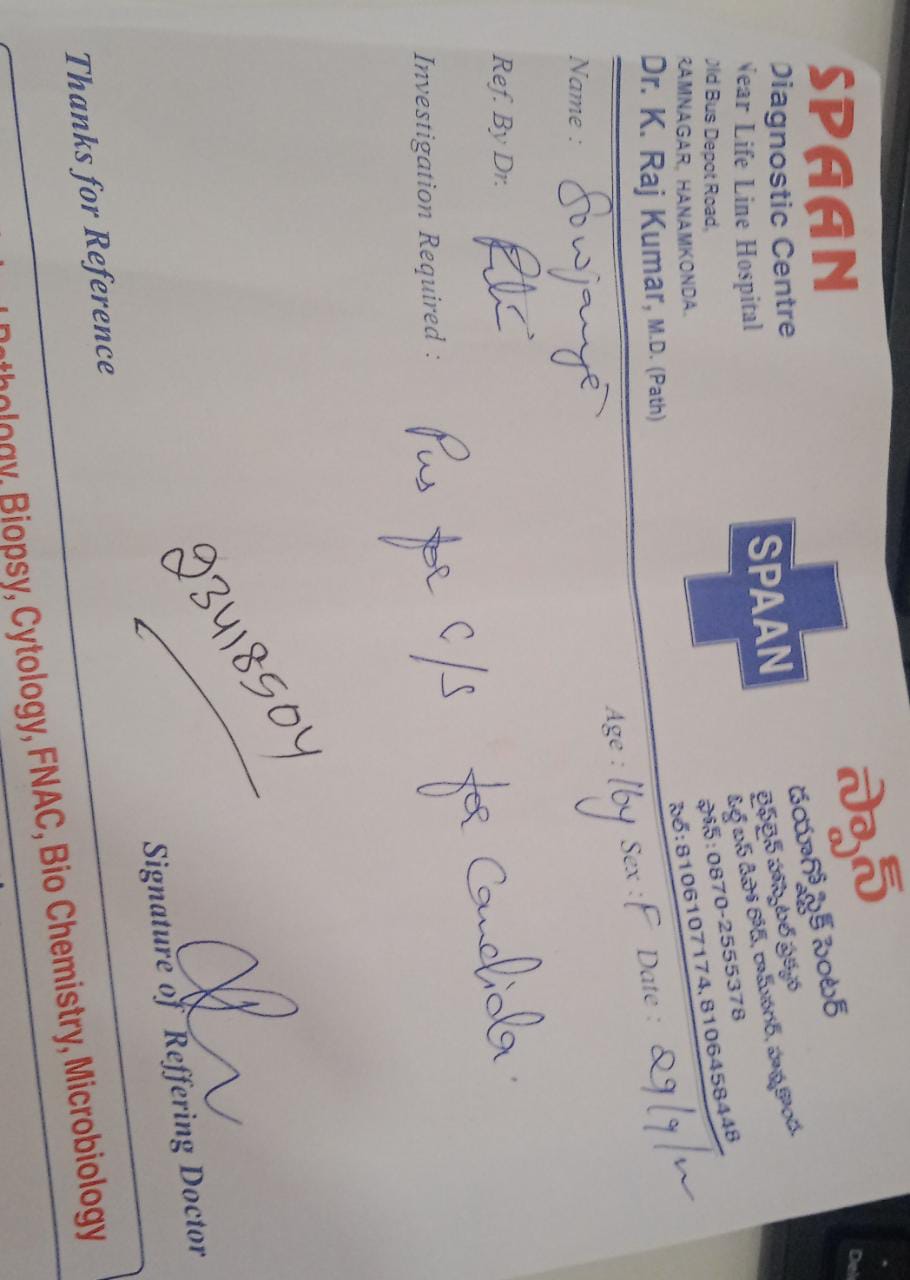 SPAAN
Diagnostic Centre
Near Life Line Hospital
Old Bus Depot Road,
RAMNAGAR, HANAMKONDA.
Dr. K. Raj Kumar, M.D. (Path)
SPAAN
స్పాన్
డయాగ్నోస్టిక్ సెంటర్
లైఫ్‌లైన్ హాస్పిటల్ ప్రక్కన
ఓల్డ్ బస్ డిపో రోడ్, రామ్‌నగర్, హన్మకొండ.
ఫోన్ : 0870-2555378
సెల్ : 8106107174, 8106458448
Name : Sowjanya
Age : 16y Sex : F Date : 29/9/
Ref. By Dr.
Investigation Required : Pus for c/s for Candida.
23418504
Thanks for Reference
Signature of Reffering Doctor
Pathology, Biopsy, Cytology, FNAC, Bio Chemistry, Microbiology